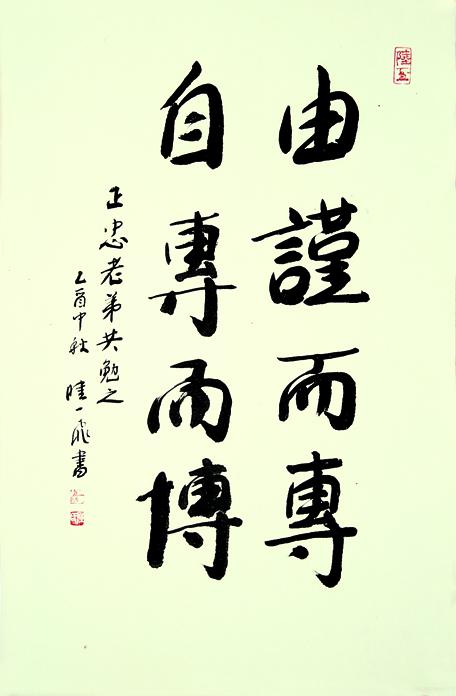 由謹而專
自專而博
正忠老弟共勉之
乙酉中秋 陸一飛書